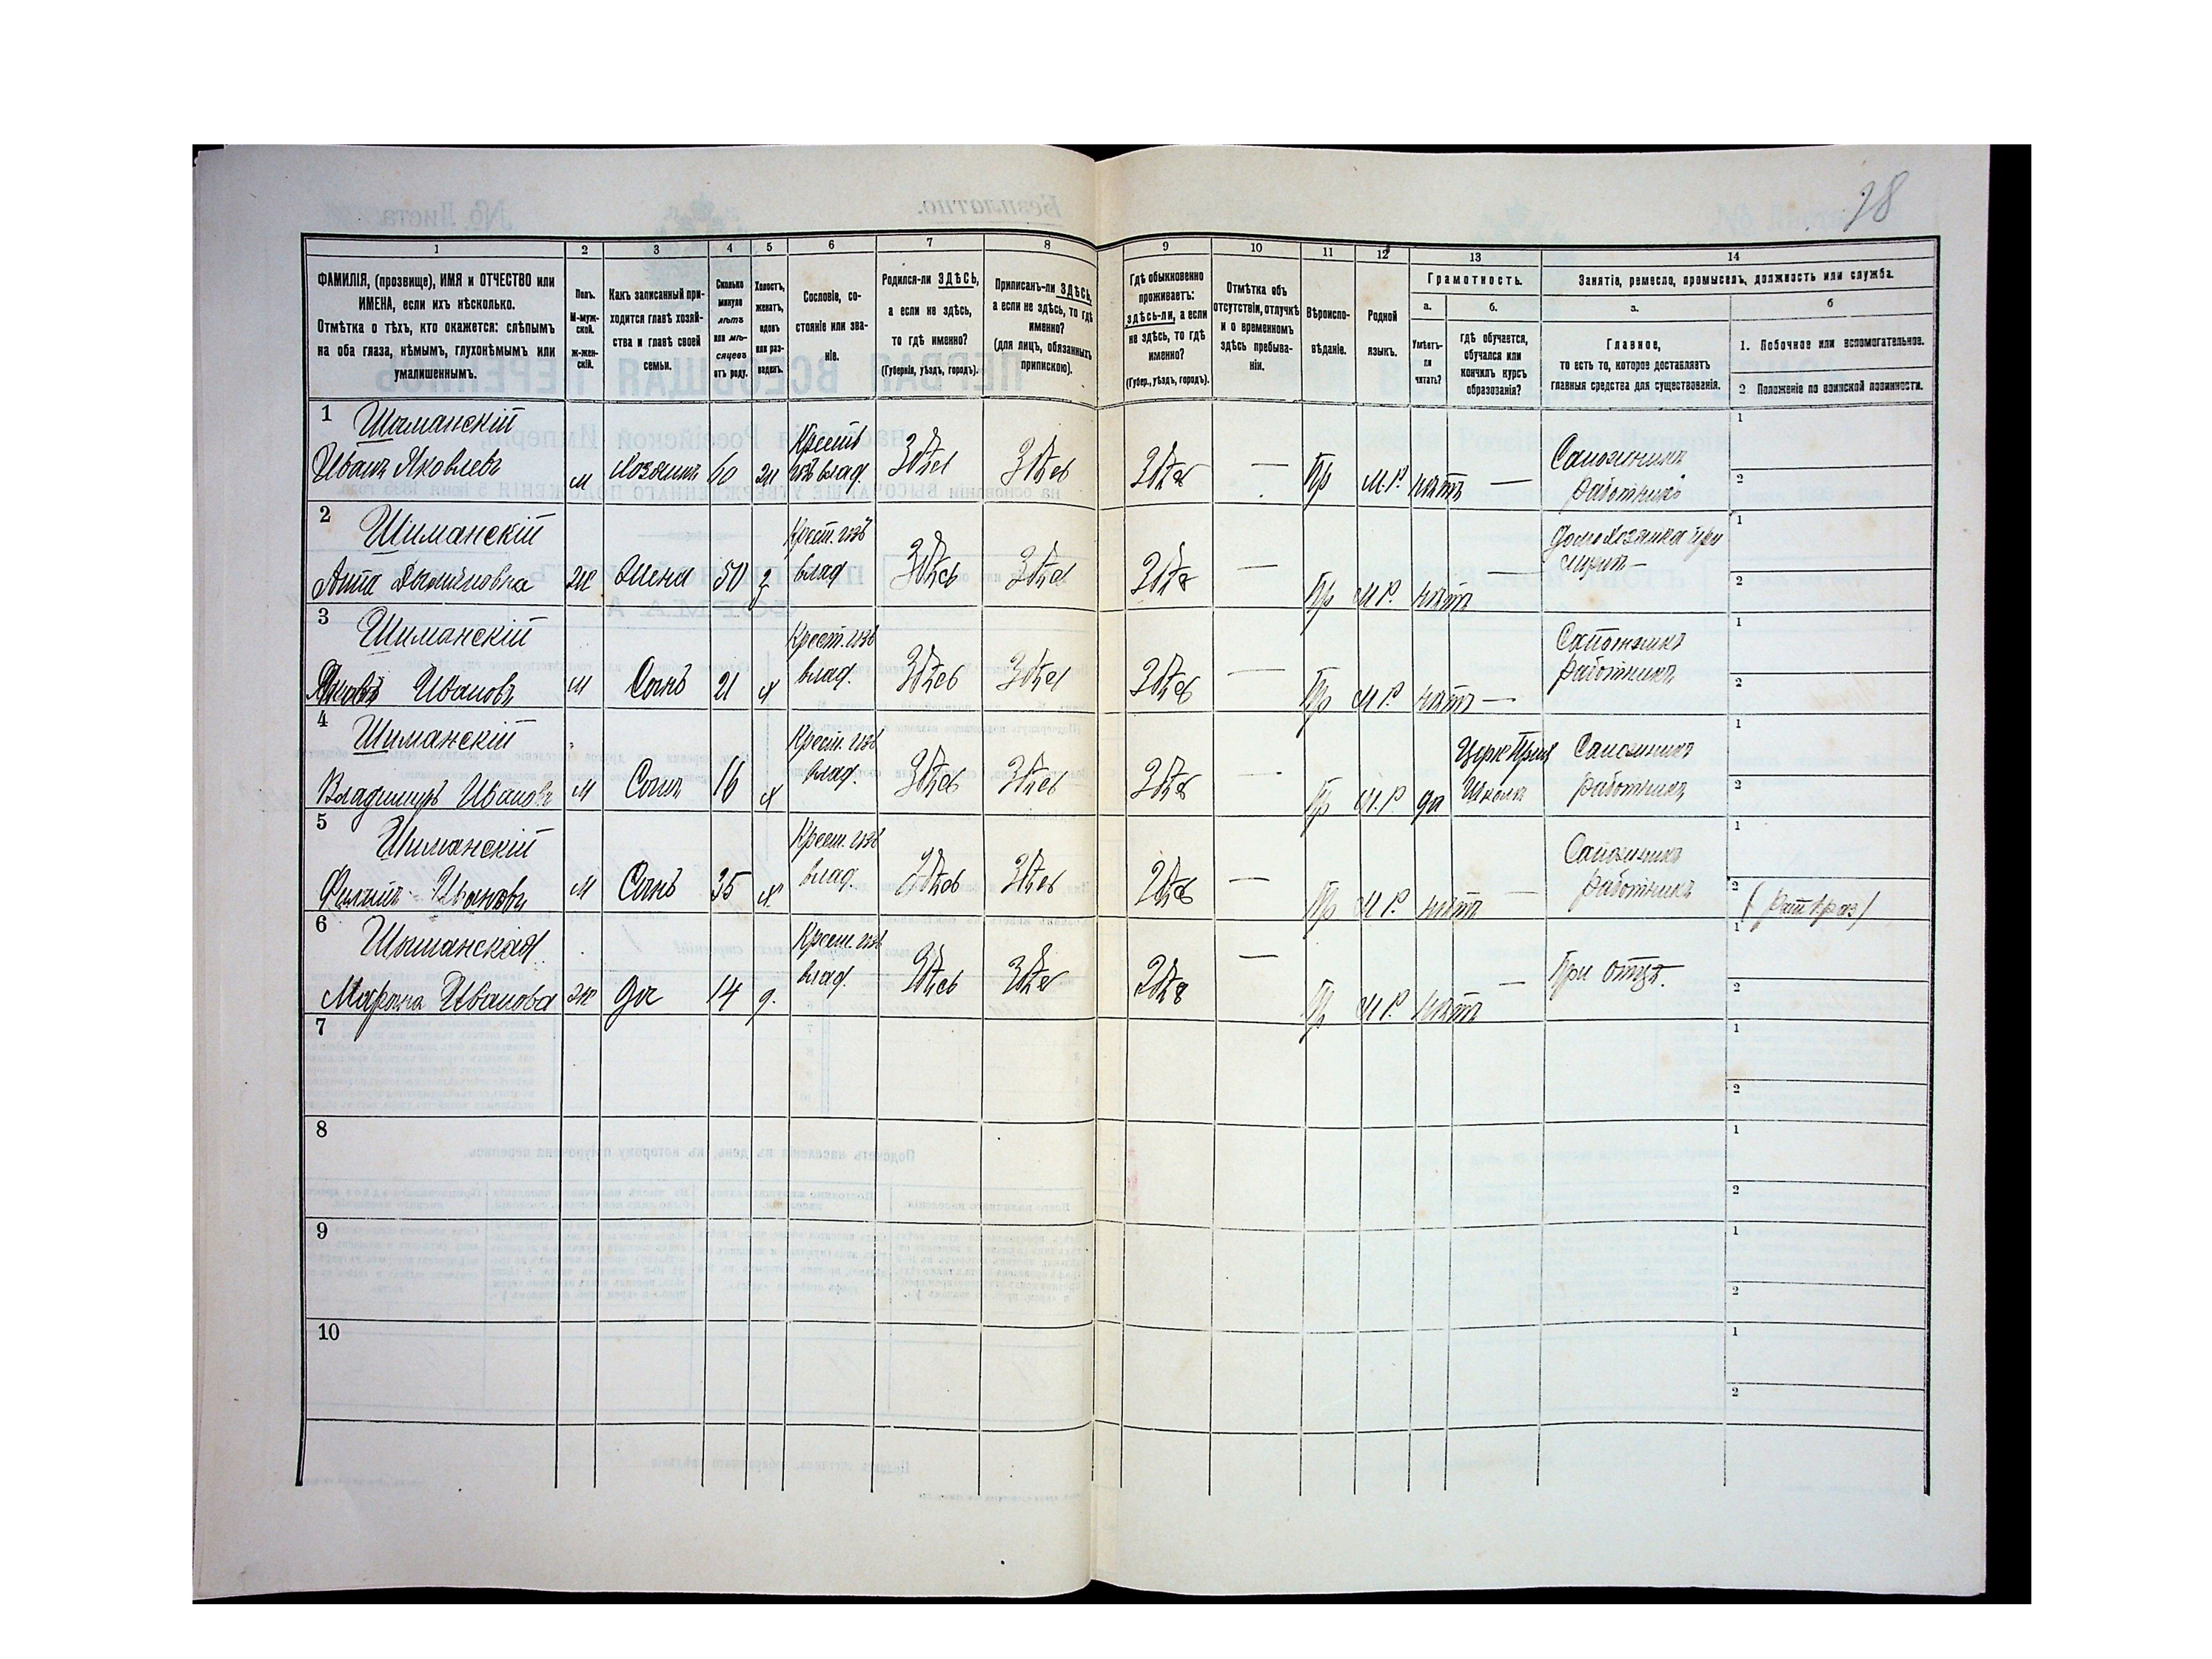 78
1 2 3 4 5 6 7 8 9 10 11 12 13 14
ФАМИЛІЯ, (прозвище), ИМЯ и ОТЧЕСТВО или
ИМЕНА, если ихъ нѣсколько.
Отмѣтка о тѣхъ, кто окажется: слѣпымъ
на оба глаза, нѣмымъ, глухонѣмымъ или
умалишеннымъ.
Полъ.
М-муж-
ской.
ж-жен-
скій.
Какъ записанный при-
ходится главѣ хозяй-
ства и главѣ своей
семьи.
Сколько
минуло
лѣтъ
или мѣ-
сяцевъ
отъ роду.
Холостъ,
женатъ,
вдовъ
или раз-
веденъ.
Сословіе, со-
стояніе или зва-
ніе.
Родился-ли ЗДѢСЬ,
а если не здѣсь,
то гдѣ именно?
(Губернія, уѣздъ, городъ).
Приписанъ-ли ЗДѢСЬ,
а если не здѣсь, то гдѣ
именно?
(для лицъ, обязанныхъ
припискою).
Гдѣ обыкновенно
проживаетъ:
здѣсь-ли, а если
не здѣсь, то гдѣ
именно?
(Губер., уѣздъ, городъ).
Отмѣтка объ
отсутствіи, отлучкѣ
и о временномъ
здѣсь пребыва-
ніи.
Вѣроиспо-
вѣданіе.
Родной
языкъ.
Грамотность.
а. б.
Умѣетъ-
ли
читать?
гдѣ обучается,
обучался или
кончилъ курсъ
образованія?
Занятіе, ремесло, промыселъ, должность или служба.
а. б
Главное,
то есть то, которое доставляетъ
главныя средства для существованія.
1. Побочное или вспомогательное.
2 Положеніе по воинской повинности.
1 Шиманскій Крест 1
Иванъ Яковлевъ м Хозяинъ 60 ж изъ влад. Здѣсь Здѣсь Здѣсь — Пр М.Р. нѣтъ — Сапожникъ
работникъ 2
2 Шиманскій Крест. изъ 1
Анна ж Жена 50 з влад Здѣсь Здѣсь Здѣсь — Пр М Р. нѣтъ — Домохозяйка при
2
3 Шиманскій Крест. изъ Сапожникъ 1
Ивановъ м Сынъ 21 х влад. Здѣсь Здѣсь Здѣсь — Пр М Р. нѣтъ — работникъ 2
4 Шиманскій Крест. изъ Церк Прих Сапожникъ 1
Владимиръ Ивановъ м Сынъ 16 х влад. Здѣсь Здѣсь Здѣсь — Пр М.Р да Школа работникъ 2
5 Шиманскій Крест. изъ Сапожникъ 1
Филипъ Ивановъ м Сынъ 35 х влад. Здѣсь Здѣсь Здѣсь — Пр М Р. нѣтъ — работникъ 2 (Рат 1 раз)
6 Шиманская Крест. изъ 1
Марина Иванова ж доч 14 д. влад. Здѣсь Здѣсь Здѣсь — Пр М Р. нѣтъ — При отцѣ. 2
7 1
2
8 1
2
9 1
2
10 1
2